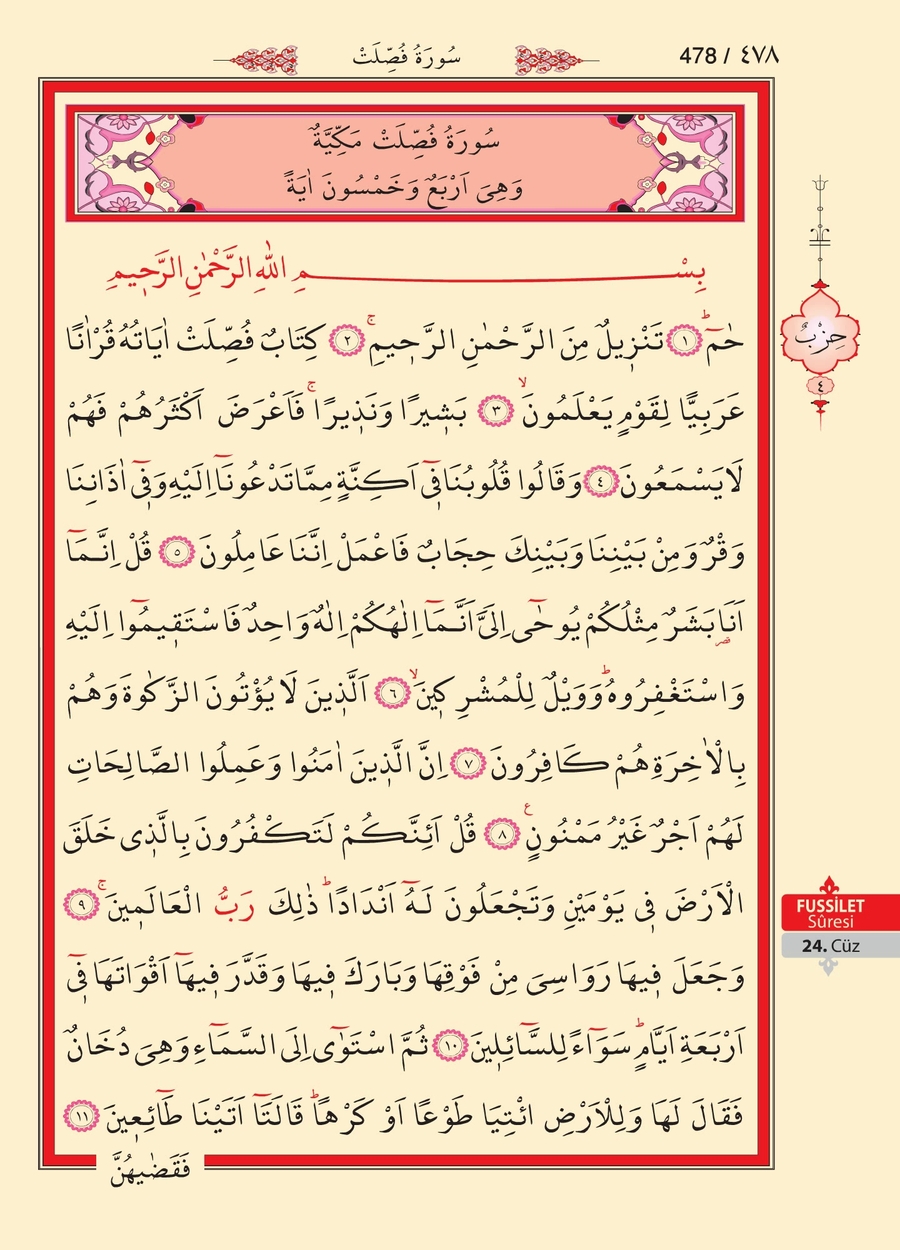 سُورَةُ فُصِّلَتْ
478 / ٤٧٨
سُورَةُ فُصِّلَتْ مَكِّيَّةٌ
وَهِىَ اَرْبَعٌ وَخَمْسُونَ اٰيَةً
بِسْمِ اللّٰهِ الرَّحْمٰنِ الرَّحٖيمِ
حٰمٓ ط ١ تَنْزٖيلٌ مِنَ الرَّحْمٰنِ الرَّحٖيمِ ج ٢ كِتَابٌ فُصِّلَتْ اٰيَاتُهُ قُرْاٰنًا
عَرَبِيًّا لِقَوْمٍ يَعْلَمُونَ لا ٣ بَشٖيرًا وَنَذٖيرًا ج فَاَعْرَضَ اَكْثَرُهُمْ فَهُمْ
لَا يَسْمَعُونَ ٤ وَقَالُوا قُلُوبُنَا فٖٓى اَكِنَّةٍ مِمَّا تَدْعُونَٓا اِلَيْهِ وَفٖٓى اٰذَانِنَا
وَقْرٌ وَمِنْ بَيْنِنَا وَبَيْنِكَ حِجَابٌ فَاعْمَلْ اِنَّنَا عَامِلُونَ ٥ قُلْ اِنَّمَٓا
اَنَا۬ بَشَرٌ مِثْلُكُمْ يُوحٰٓى اِلَىَّ اَنَّمَٓا اِلٰهُكُمْ اِلٰهٌ وَاحِدٌ فَاسْتَقٖيمُٓوا اِلَيْهِ
قصر
وَاسْتَغْفِرُوهُ ط وَوَيْلٌ لِلْمُشْرِكٖينَ لا ٦ اَلَّذٖينَ لَا يُؤْتُونَ الزَّكٰوةَ وَهُمْ
بِالْاٰخِرَةِ هُمْ كَافِرُونَ ٧ اِنَّ الَّذٖينَ اٰمَنُوا وَعَمِلُوا الصَّالِحَاتِ
لَهُمْ اَجْرٌ غَيْرُ مَمْنُونٍ ع ٨ قُلْ اَئِنَّكُمْ لَتَكْفُرُونَ بِالَّذٖى خَلَقَ
الْاَرْضَ فٖى يَوْمَيْنِ وَتَجْعَلُونَ لَهُٓ اَنْدَادًا ط ذٰلِكَ رَبُّ الْعَالَمٖينَ ج ٩
وَجَعَلَ فٖيهَا رَوَاسِىَ مِنْ فَوْقِهَا وَبَارَكَ فٖيهَا وَقَدَّرَ فٖيهَٓا اَقْوَاتَهَا فٖٓى
اَرْبَعَةِ اَيَّامٍ ط سَوَٓاءً لِلسَّٓائِلٖينَ ١٠ ثُمَّ اسْتَوٰٓى اِلَى السَّمَٓاءِ وَهِىَ دُخَانٌ
فَقَالَ لَهَا وَلِلْاَرْضِ ائْتِيَا طَوْعًا اَوْ كَرْهًا ط قَالَتَٓا اَتَيْنَا طَٓائِعٖينَ ١١
فَقَضٰيهُنَّ
حِزْبٌ
٤
FUSSİLET
Sûresi
24. Cüz